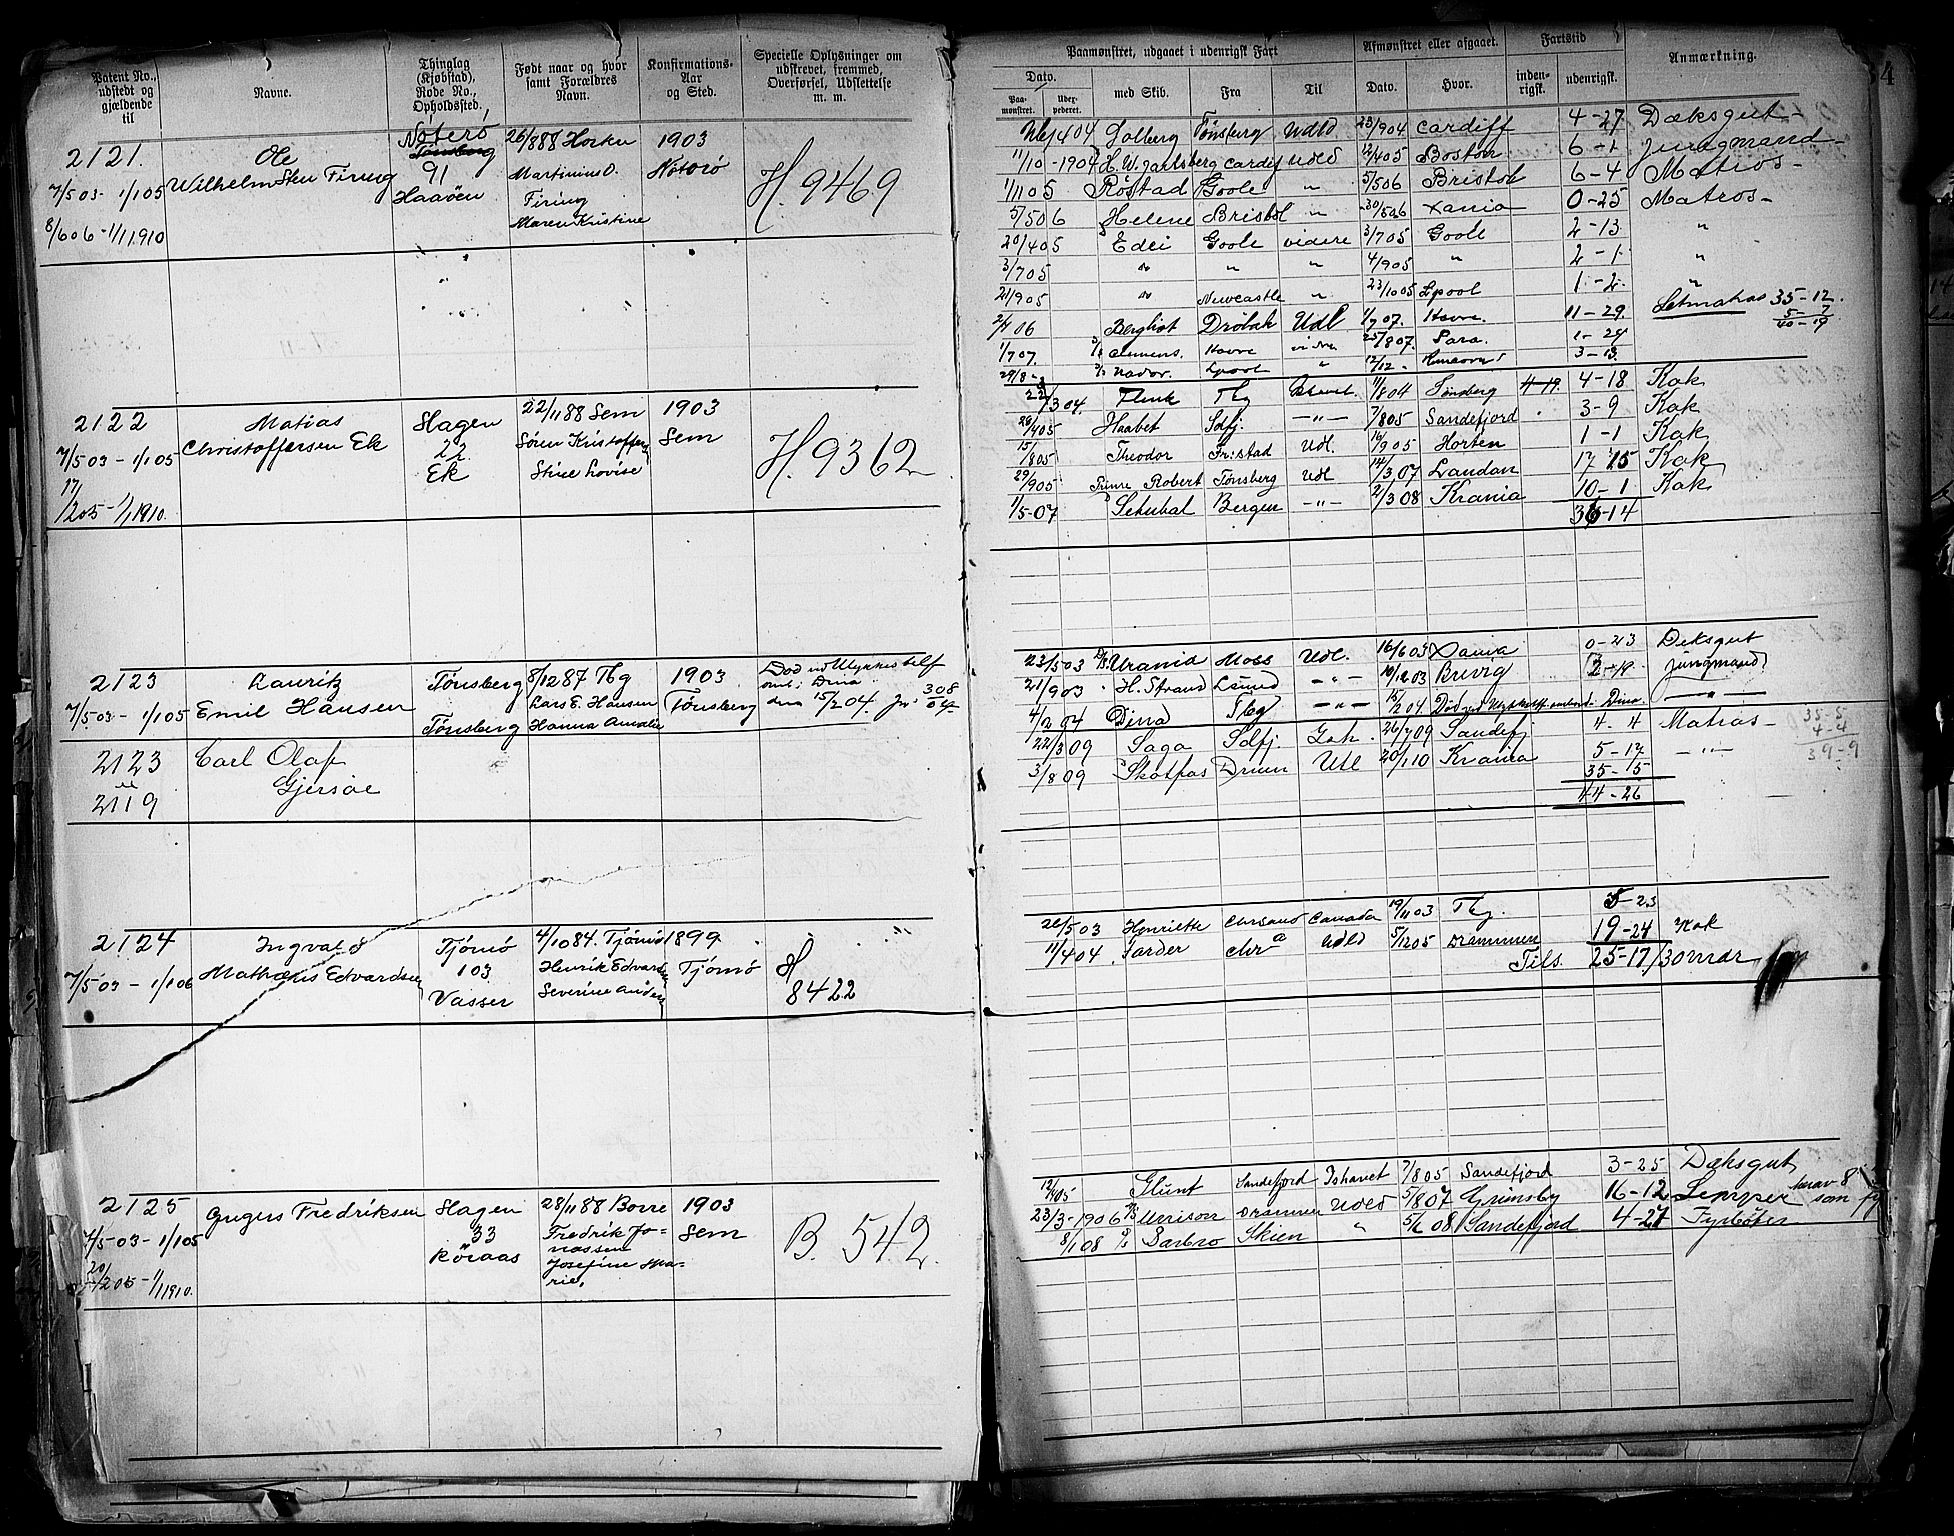 Patent No., udstedt og gjældende til
Navne.
Thinglag (Kjøbstad), Rode No., Opholdssted.
Født naar og hvor samt Forældres Navn.
Konfirmations-Aar og Sted.
Specielle Oplysninger om udskrevet, fremmed, Overførsel, Udslettelse m. m.
2121.
7/5 03 - 1/1 05
8/6 06 - 1/1 1910
Ole
Wilhelm Sten Firing
Nøterø
Tønsberg
91
Haaøen
26/8 88
Martinius O.
Firing
Maren Kristine
1903
Nøterø
H. 9469
2122
7/5 03 - 1/1 05
17/12 05 - 1/1 1910.
Matias
Christoffersen Ek
Slagen
22
Ek
22/11 88 Sem
Søren Kristoffersen
Stine Lovise
1903
Sem
H. 9362
2123
7/5 03 - 1/1 05
Lauritz
Emil Hansen
Tønsberg
Tønsberg
8/12 87 Tbg
Lars E. Hansen
Hanna Amalie
1903
Tønsberg
Død ved Ulykkestilf
omb. i Dina
den 15/2 04. Jn. 308/04
2123
2119
Carl Olaf
Gjersøe
2124
7/5 03 - 1/1 06
Ingvald
Mathæus Edvardsen
Tjømø
103
Vasser
4/10 84. Tjømø
Henrik Edvardsen
Severine Andersen
1899
Tjømø
H
8422
2125
7/5 03 - 1/1 05
20/12 05 - 1/1 1910.
Yngers Fredriksen
Slagen
33
Røraas
28/11 88 Borre
Fredrik Jo-
nassen
Josefine Ma-
rie.
1903
Sem
B. 542.
Paamønstret, udgaaet i udenrigsk Fart
Afmønstret eller afgaaet.
Fartstid
Anmærkning.
Dato.
Paamønstret.
Udexpederet.
med Skib.
Fra
Til
Dato.
Hvor.
indenrigsk.
udenrigsk.
4
Solberg Tønsberg Udld 23/9 04 Cardiff 4-27 Dæksgut
11/10 - 1904 H. W. Jarlsberg Cardif Udld 12/4 05 Boston 6-1 Jungmand
1/11 05 Røstad Goole " 5/5 06 Bristol 6-4 Matros
5/5 06 Helene Bristol " 30/5 06 Xania 0-25 Matros
20/4 05 Edei Goole videre 3/7 05 Goole 2-13 "
3/7 05 " " " 4/9 05 " 2-1 "
21/9 05 " Newcastle " 23/10 05 Lpool 1-2 "
2/7 06 Bergliot Drøbak Udl 1/7 07. Havre. 11-29 Letmatros 35-12.
5-7
40-19
1/7 07. Clemens. Havre 25/8 07. Para. 1-24
29/8 Nador. Lpool " 12/12 3-13
22/3 04. Flink Tbg Ishavet. 11/8 04 Tønsberg 4-19 4-18 Kok
29/4 05 Haabet Sdfj. -"- 7/8 05 Sandefjord 3-9 Kok
15/8 05 Theodor Fr:stad Udl. 16/9 05 Horten 1-1 Kok
29/9 05 Robert Tønsberg Udl 14/3 07 London 17-15 Kok
1/5-07 Setubal Bergen -"- 2/3 08 Krania 10-1 Kok
36-14
23/5 03 Urania Moss Udl. 16/6 03 Xania 0-23 Deksgut
21/9 03 H. Strand Lsund -"- 10/12 03 Brevig 2-19 Jungmand
4/2 04 Dina Tbg -"- 15/2 04 Død ved Ulykkestilf ombord i Dina. -"-
22/3 09 Saga Sdfj. Ish. 26/7 09 Sandefj 4-4 Matros
3/8 09 Skotfos Drmn Udl 20/1 10 Krania 5-17 -"-
35-15
44-26
35-5
4-4
39-9
26/5 03 Henriette Chrsand Canada 19/11 03 Tbg. 5-23
11/4 04 Færder Chra Udld 5/12 05 Drammen 19-24 Kok
Tils. 25-17/30 mdr
12/4 05 Glunt Sandefjord Ishavet 7/8 05 Sandefjord 3-25 Dæksgut
23/3-1906 Unison Drammen Udld 5/8 07 Grimsby 16-12 Lemper
8/1 08 Barbro Skien " 5/6 08 Sandefjord 4-27 Fyrbøter